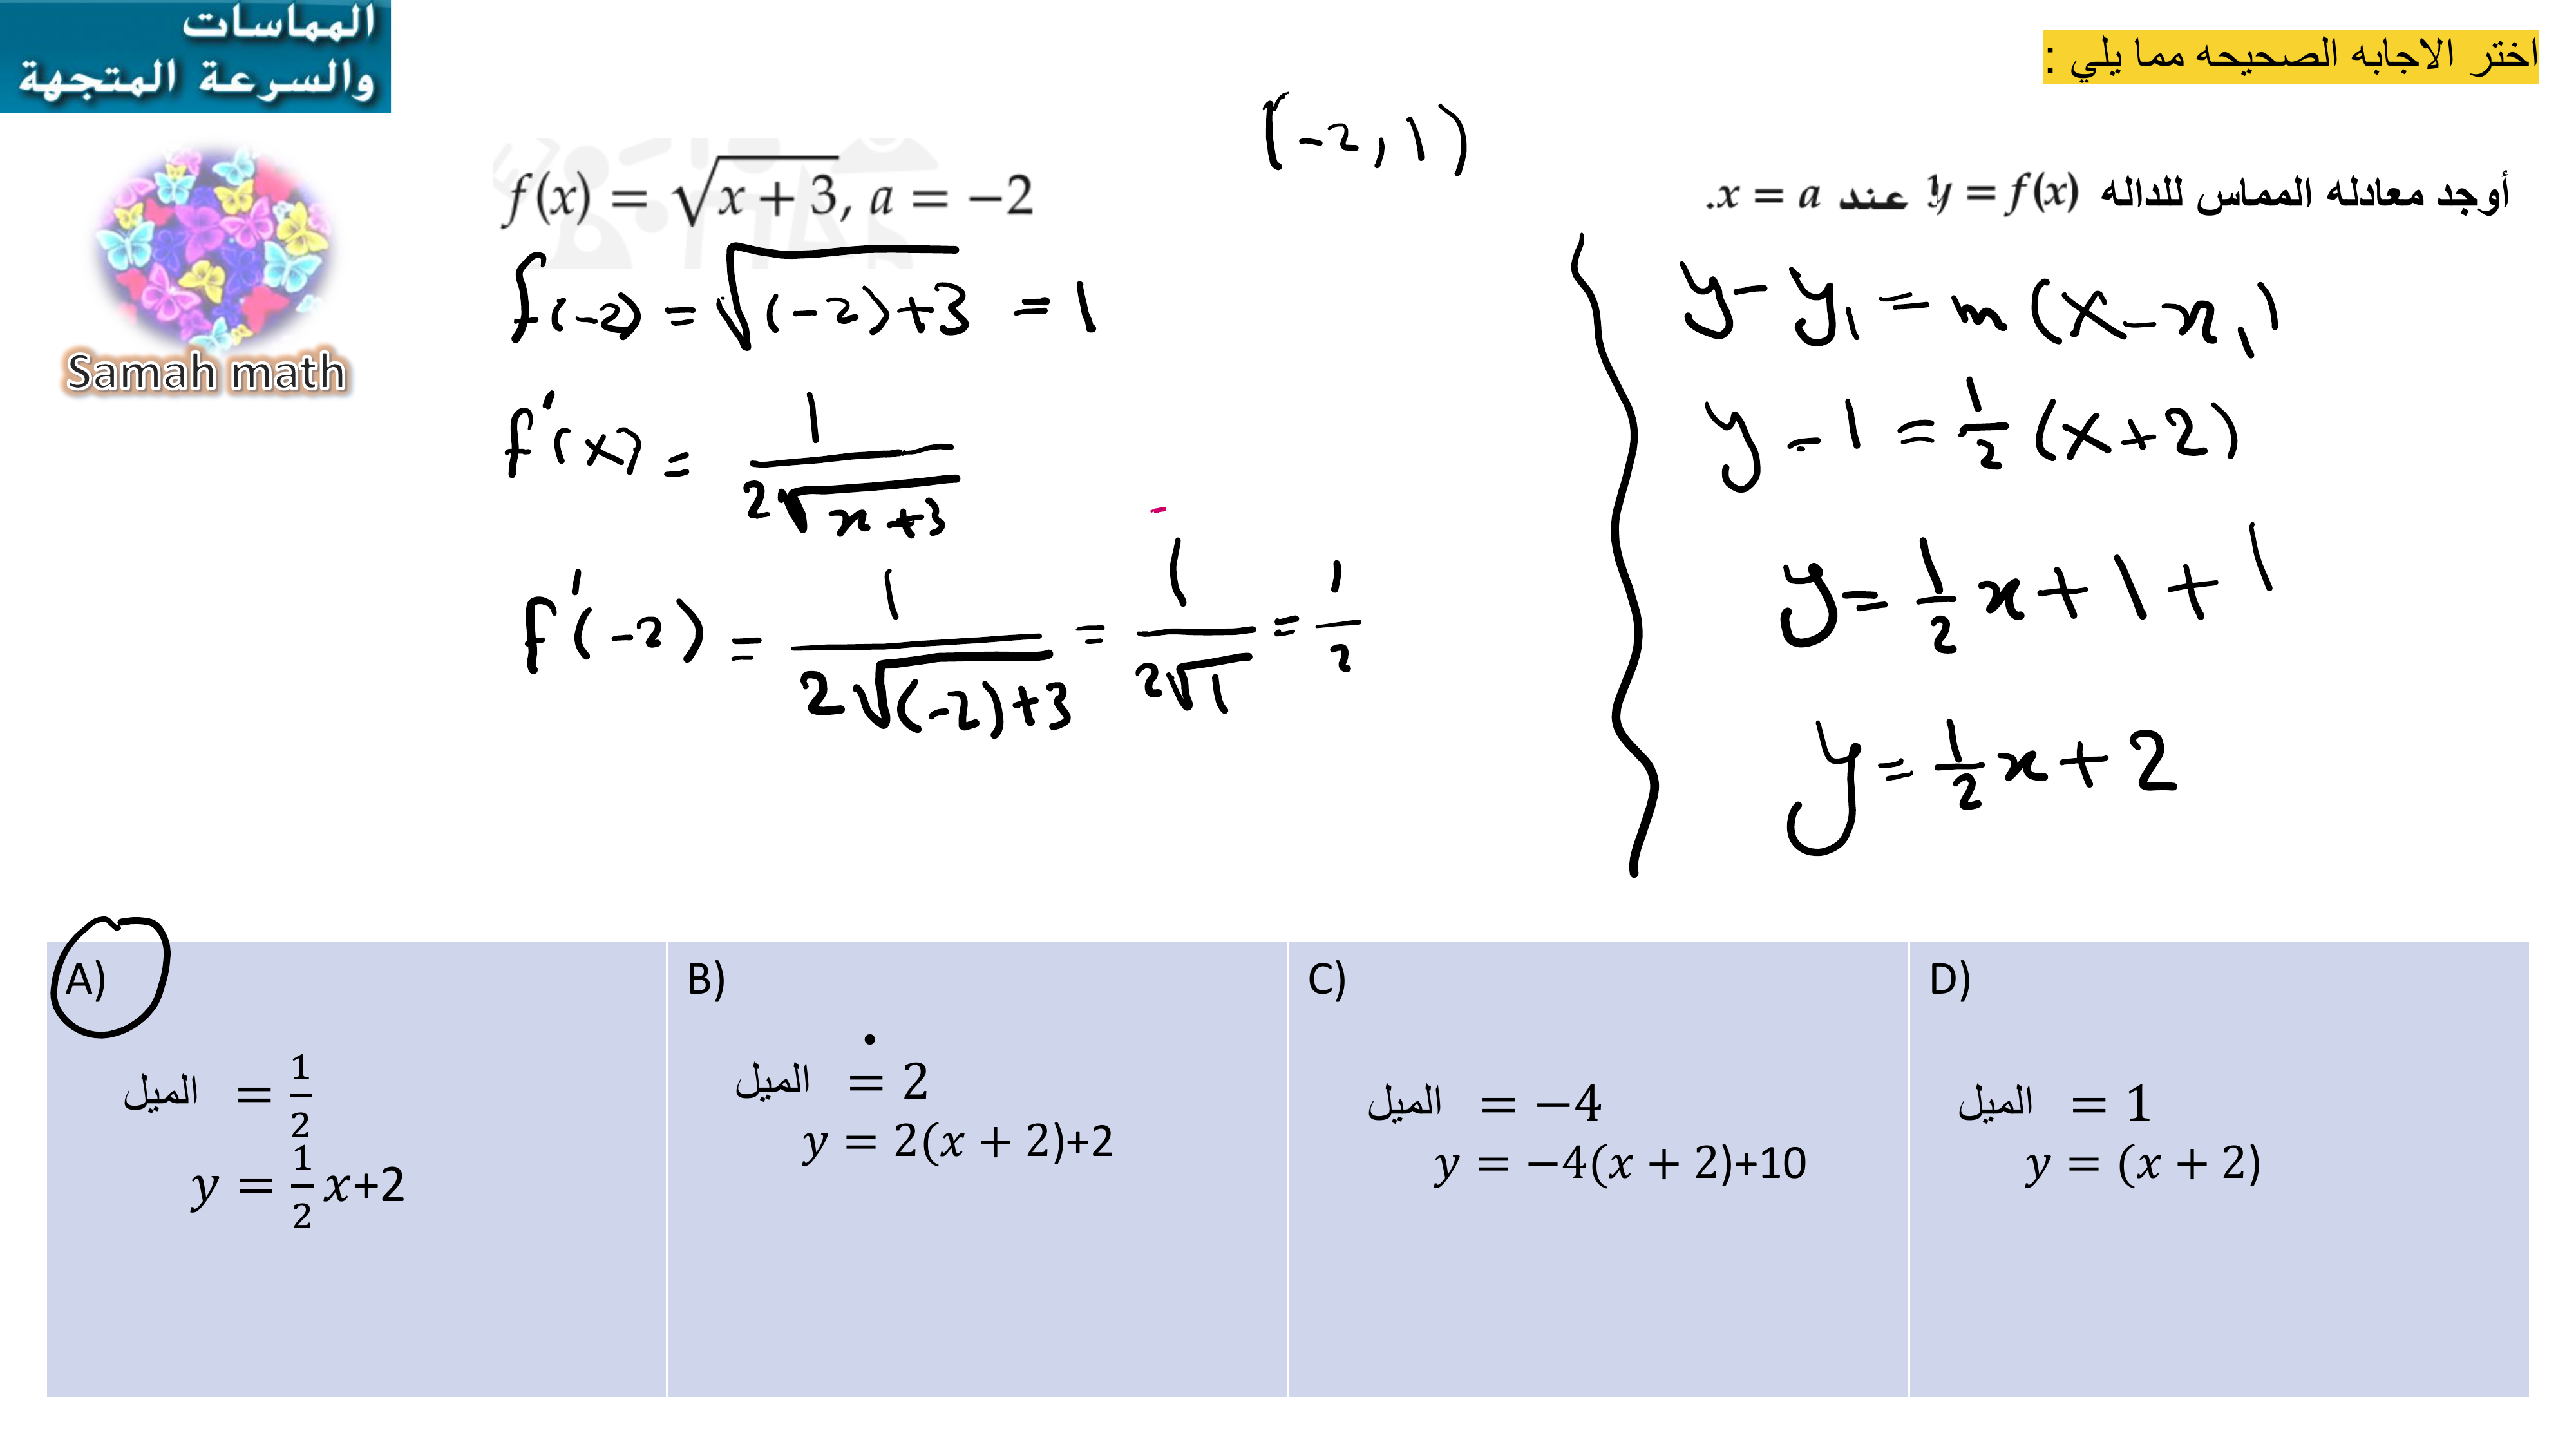 المماسات
والسرعة المتجهة
اختر الاجابه الصحيحه مما يلي :
Samah math
أوجد معادله المماس للداله y = f(x) عند x = a.
f(x) = √(x + 3), a = −2
(-2, 1)
f(-2) = √((-2)+3) = 1
f'(x) = 1/(2√(x+3))
f'(-2) = 1/(2√((-2)+3)) = 1/(2√1) = 1/2
y - y₁ = m (x - x₁)
y - 1 = 1/2 (x+2)
y = 1/2 x + 1 + 1
y = 1/2 x + 2
A)
الميل = 1/2
y = 1/2 x+2
B)
الميل = 2
y = 2(x + 2)+2
C)
الميل = −4
y = −4(x + 2)+10
D)
الميل = 1
y = (x + 2)